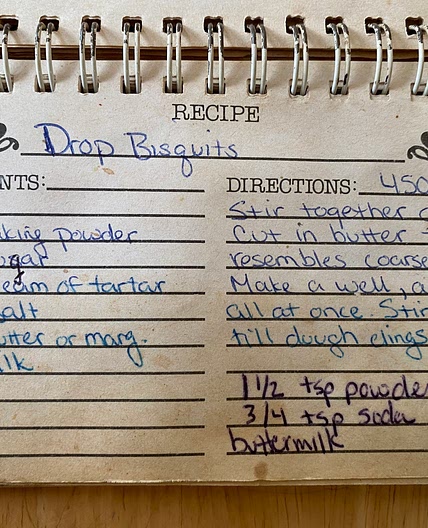 RECIPE
Drop Bisquits
NTS:
aking powder
ugar
eam of tartar
salt
utter or marg.
ilk
DIRECTIONS: 450
Stir together
Cut in butter
resembles coarse
Make a well, a
all at once. Stir
till dough clings
1 1/2 tsp powder
3/4 tsp soda
buttermilk